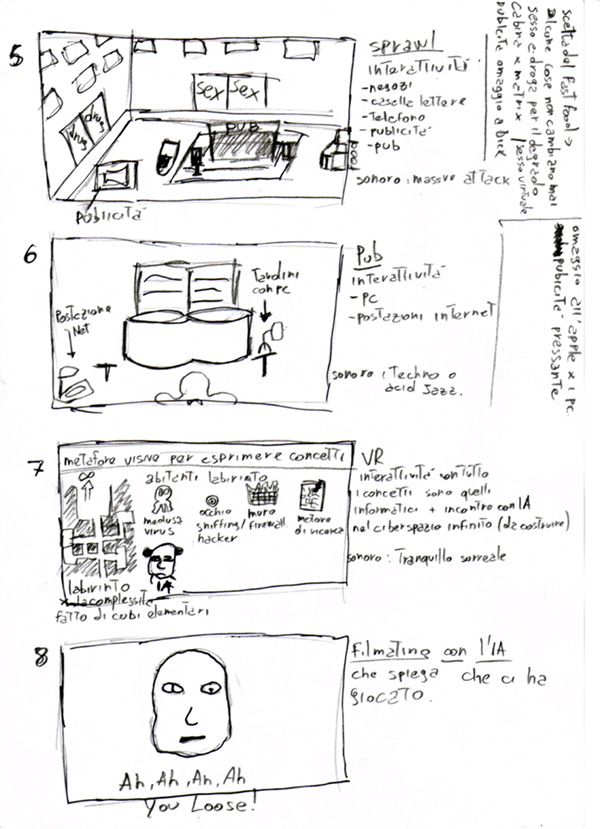 5
SEX SEX
drug
drug
PUB
PUBLICITÀ
sprawl
interattività
-negozi
-casella lettere
-telefono
-pubblicità
-pub
sonoro : massive attack
scelta del fast food →
alcune cose non cambiano mai
sesso e droga per il degrado
Cabina x matrix / sesso virtuale
pubblicità omaggio a Dick
6
Postazione
Net
Tavolini
con pc
Pub
interattività
- pc
- postazioni internet
sonoro : Techno o
acid Jazz.
omaggio all'apple x i pc
pubicità pressante
7
metafore visive per esprimere concetti
∞
abitenti labirinto
medusa
virus
occhio
sniffing/
hacker
muro
firewall
motore
di ricerca
IA
labirinto
x la complessità
fatto di cubi elementari
VR
interattività con tutto
i concetti sono quelli
informatici + incontro con IA
nel ciberspazio infinito (da costruire)
sonoro : Tranquillo sorreale
8
Ah, Ah, Ah, Ah
You Loose!
Filmatino con l'IA
che spiega che ci ha
giocato.